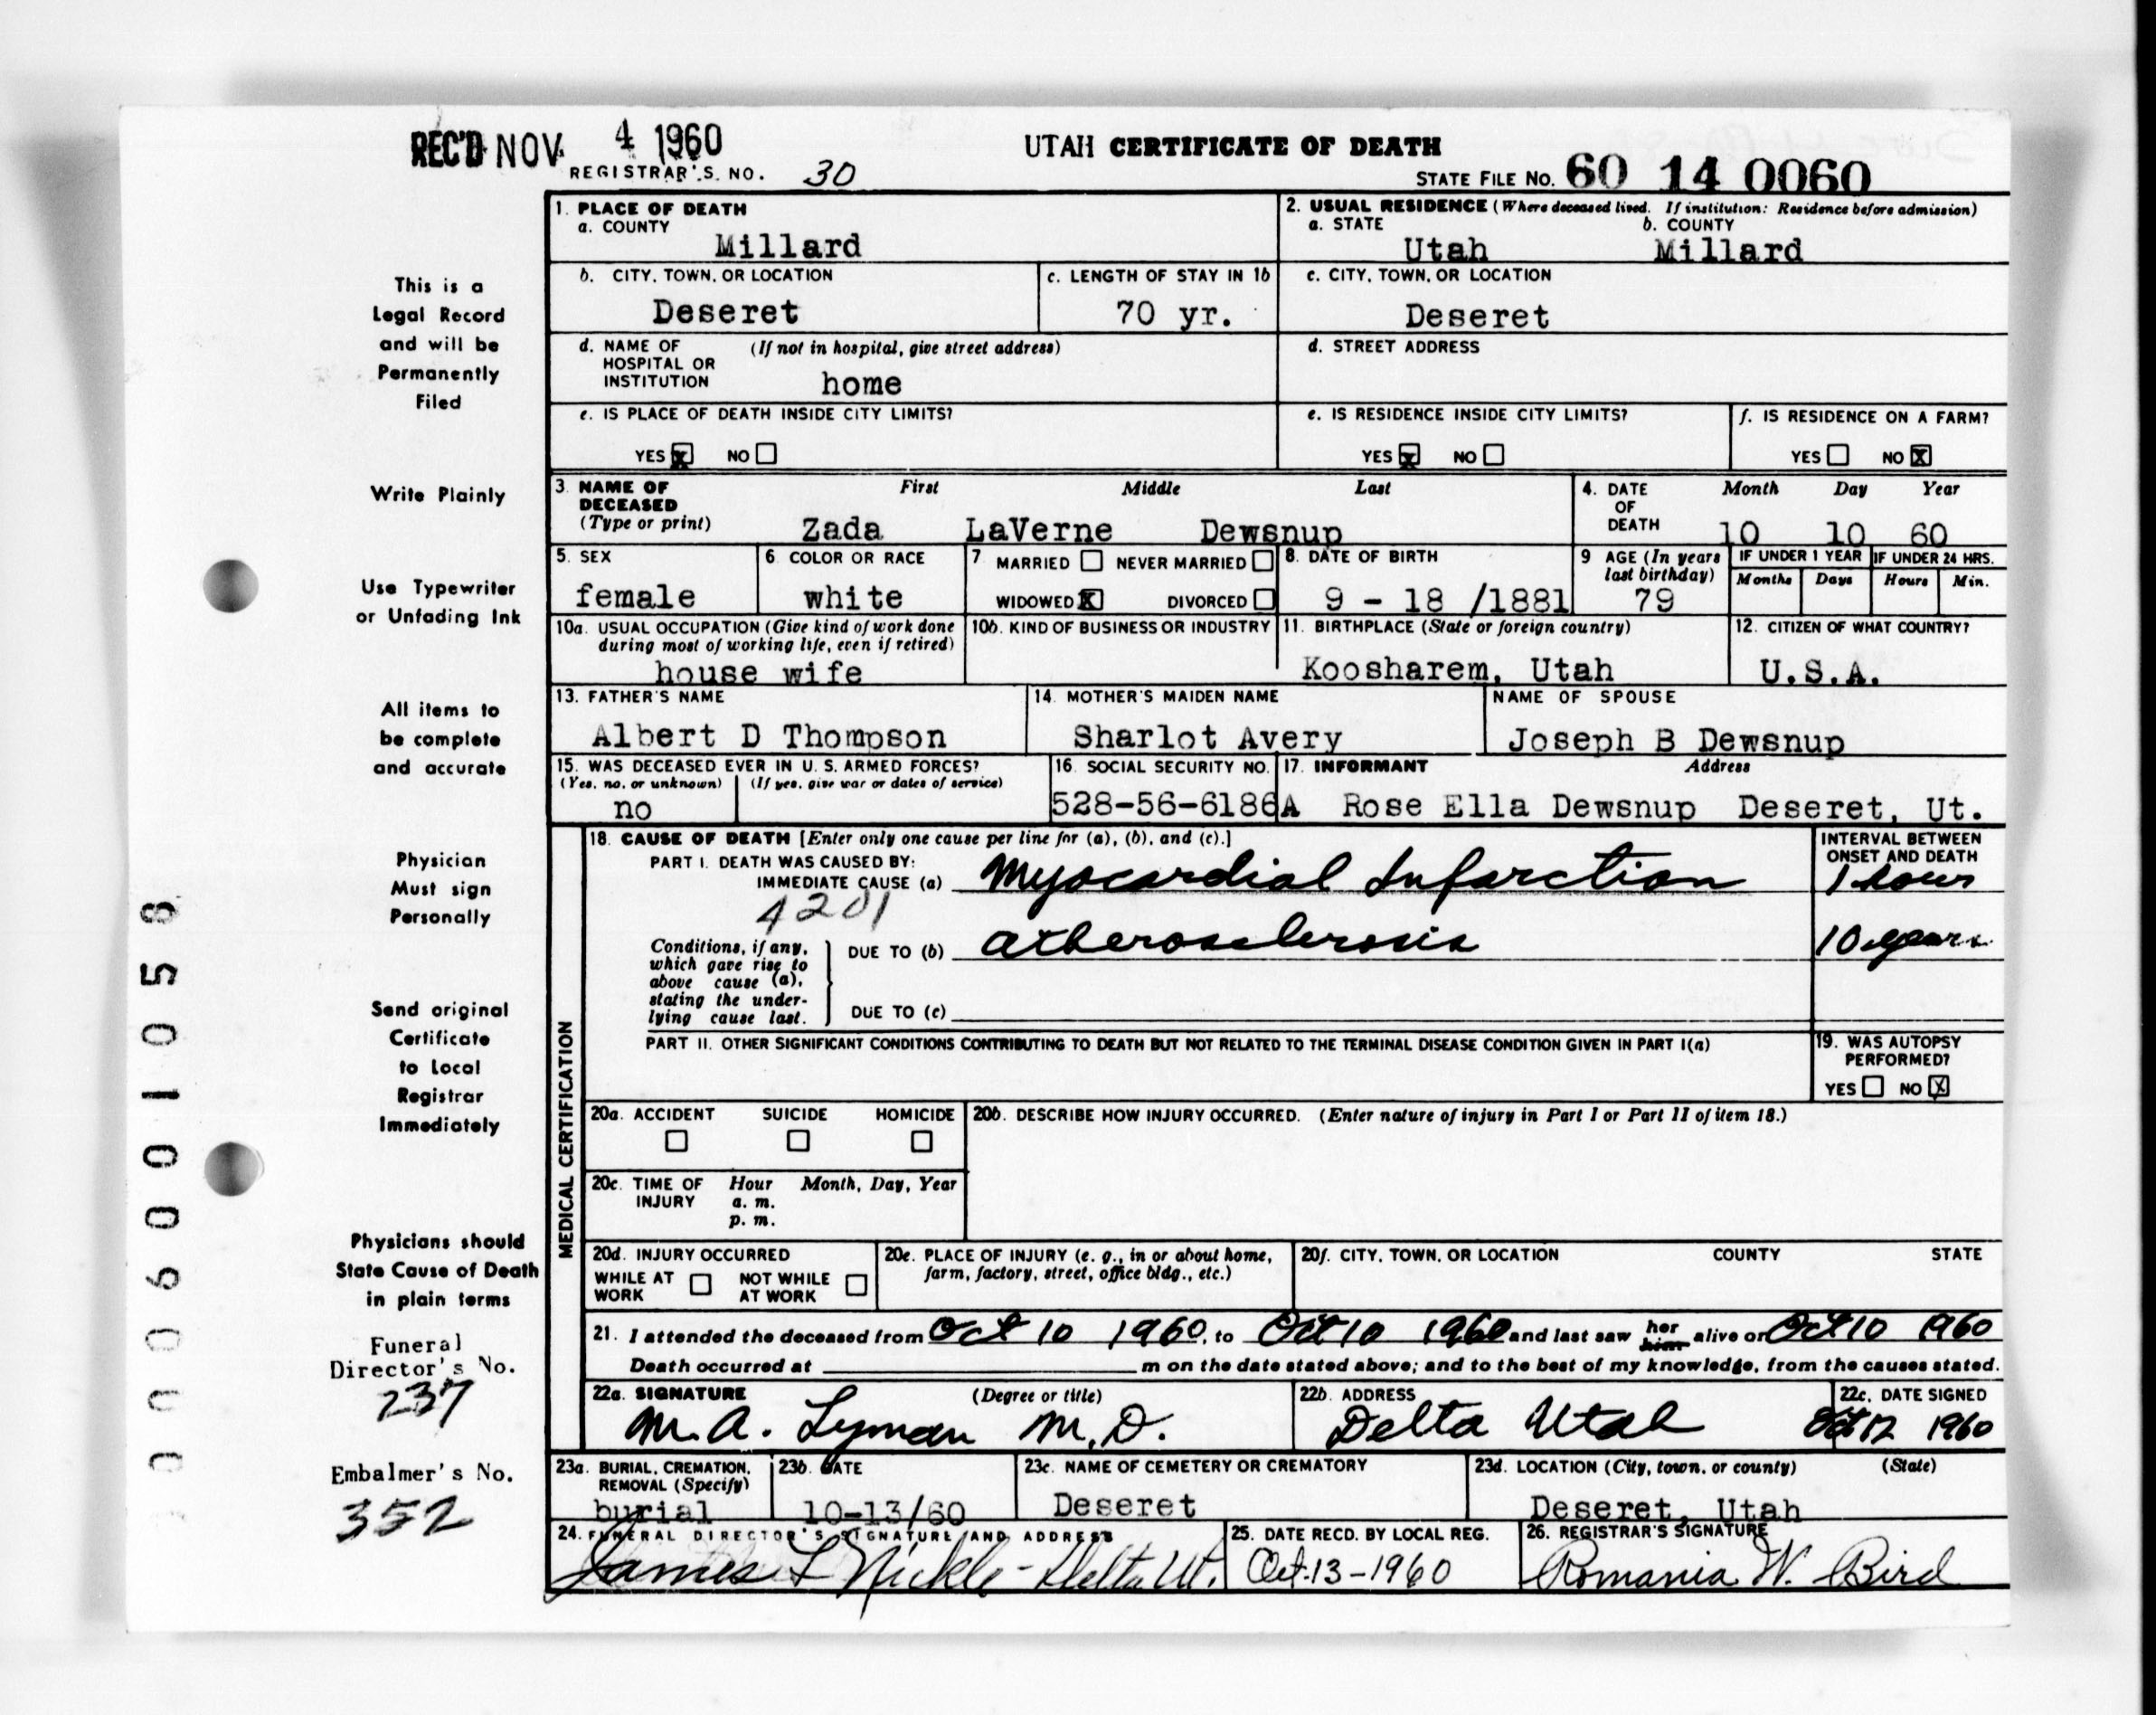 REC'D NOV 4 1960
REGISTRAR'S NO. 30
UTAH CERTIFICATE OF DEATH
STATE FILE NO. 60 14 0060
This is a
Legal Record
and will be
Permanently
Filed
Write Plainly
Use Typewriter
or Unfading Ink
All items to
be complete
and accurate
Physician
Must sign
Personally
Send original
Certificate
to Local
Registrar
Immediately
Physicians should
State Cause of Death
in plain terms
Funeral
Director's No.
237
Embalmer's No.
352
0006001058
1. PLACE OF DEATH
a. COUNTY
Millard
2. USUAL RESIDENCE (Where deceased lived. If institution: Residence before admission)
a. STATE b. COUNTY
Utah Millard
b. CITY, TOWN, OR LOCATION
Deseret
c. LENGTH OF STAY IN 1b
70 yr.
c. CITY, TOWN, OR LOCATION
Deseret
d. NAME OF (If not in hospital, give street address)
HOSPITAL OR
INSTITUTION home
d. STREET ADDRESS
e. IS PLACE OF DEATH INSIDE CITY LIMITS?
YES X NO
e. IS RESIDENCE INSIDE CITY LIMITS?
YES X NO
f. IS RESIDENCE ON A FARM?
YES NO X
3. NAME OF First Middle Last
DECEASED
(Type or print) Zada LaVerne Dewsnup
4. DATE Month Day Year
OF
DEATH 10 10 60
5. SEX
female
6. COLOR OR RACE
white
7 MARRIED NEVER MARRIED
WIDOWED X DIVORCED
8. DATE OF BIRTH
9 - 18 /1881
9 AGE (In years
last birthday)
79
IF UNDER 1 YEAR IF UNDER 24 HRS.
Months Days Hours Min.
10a. USUAL OCCUPATION (Give kind of work done
during most of working life, even if retired)
house wife
10b. KIND OF BUSINESS OR INDUSTRY
11. BIRTHPLACE (State or foreign country)
Koosharem, Utah
12. CITIZEN OF WHAT COUNTRY?
U.S.A.
13. FATHER'S NAME
Albert D Thompson
14. MOTHER'S MAIDEN NAME
Sharlot Avery
NAME OF SPOUSE
Joseph B Dewsnup
15. WAS DECEASED EVER IN U. S. ARMED FORCES?
(Yes, no, or unknown) (If yes, give war or dates of service)
no
16. SOCIAL SECURITY NO.
528-56-6186A
17. INFORMANT Address
Rose Ella Dewsnup Deseret, Ut.
MEDICAL CERTIFICATION
18. CAUSE OF DEATH [Enter only one cause per line for (a), (b), and (c).]
INTERVAL BETWEEN
ONSET AND DEATH
PART I. DEATH WAS CAUSED BY:
IMMEDIATE CAUSE (a) Myocardial Infarction 1 hour
4201
Conditions, if any,
which gave rise to
above cause (a),
stating the under-
lying cause last.
DUE TO (b) atherosclerosis 10 years
DUE TO (c)
PART II. OTHER SIGNIFICANT CONDITIONS CONTRIBUTING TO DEATH BUT NOT RELATED TO THE TERMINAL DISEASE CONDITION GIVEN IN PART I(a)
19. WAS AUTOPSY
PERFORMED?
YES NO X
20a. ACCIDENT SUICIDE HOMICIDE
20b. DESCRIBE HOW INJURY OCCURRED. (Enter nature of injury in Part I or Part II of item 18.)
20c. TIME OF Hour Month, Day, Year
INJURY a. m.
p. m.
20d. INJURY OCCURRED
WHILE AT NOT WHILE
WORK AT WORK
20e. PLACE OF INJURY (e. g., in or about home,
farm, factory, street, office bldg., etc.)
20f. CITY, TOWN, OR LOCATION COUNTY STATE
21. I attended the deceased from Oct 10 1960, to Oct 10 1960 and last saw her him alive on Oct 10 1960
Death occurred at m on the date stated above; and to the best of my knowledge, from the causes stated.
22a. SIGNATURE (Degree or title)
M. A. Lyman M.D.
22b. ADDRESS
Delta Utah
22c. DATE SIGNED
Oct 12 1960
23a. BURIAL, CREMATION,
REMOVAL (Specify)
burial
23b. DATE
10-13/60
23c. NAME OF CEMETERY OR CREMATORY
Deseret
23d. LOCATION (City, town, or county) (State)
Deseret, Utah
24. FUNERAL DIRECTOR'S SIGNATURE AND ADDRESS
James L Nickle - Delta Ut.
25. DATE RECD. BY LOCAL REG.
Oct. 13 - 1960
26. REGISTRAR'S SIGNATURE
Romania W. Bird